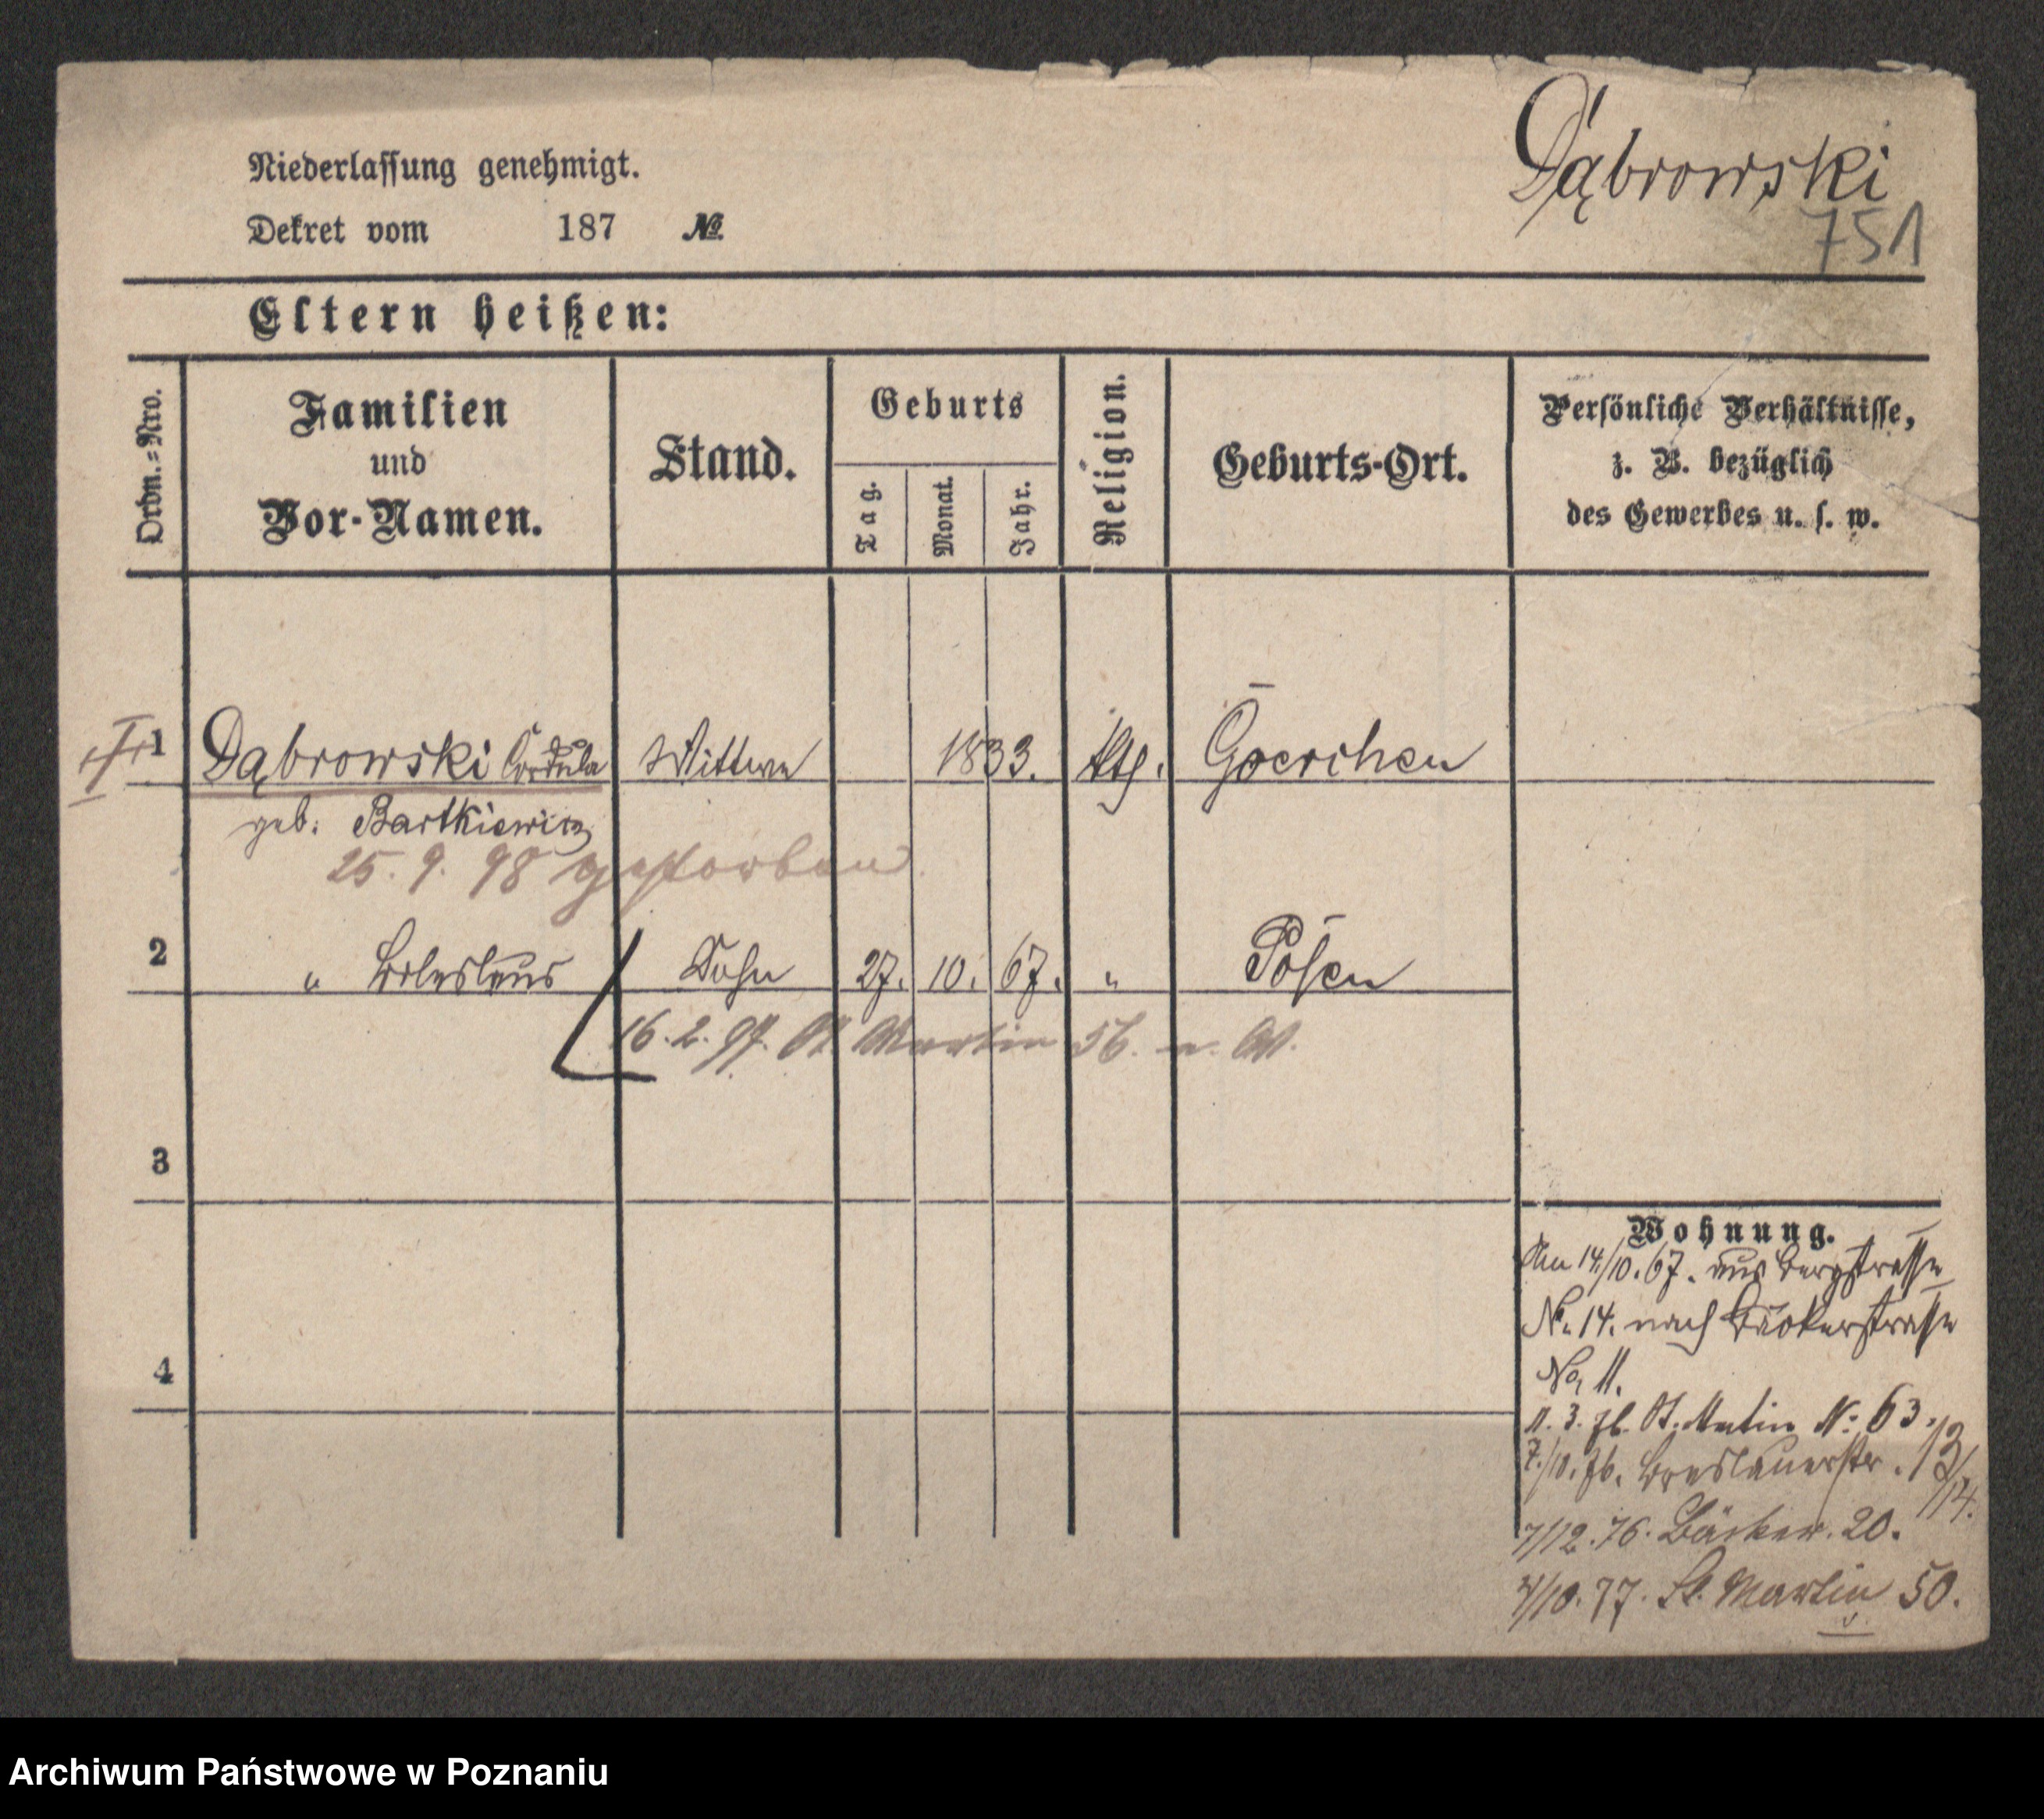 Dąbrowski
751
Niederlassung genehmigt.
Dekret vom 187 №
Eltern heißen:
Ordn.=Nro.
Familien
und
Vor-Namen.
Stand.
Geburts
Tag.
Monat.
Jahr.
Religion.
Geburts-Ort.
Persönliche Verhältnisse,
z. B. bezüglich
des Gewerbes u. s. w.
1 Dąbrowski Cordula Wittwe 1833. Kth. Goerchen
geb: Bartkiewicz
25. 9. 98 gestorben
2 " Boleslaus Sohn 27. 10. 67. " Posen
16. 2. 97. St. Martin 56. n. W.
3
4
Wohnung.
Am 14/10. 67. aus Bergstrasse
No. 14. nach Bäckerstrasse
No 11.
11. 3. St. Martin No: 63.
7./10. Breslauerstr. 13/14.
7/12. 76. Bäcker. 20.
4/10. 77. St. Martin 50.
Archiwum Państwowe w Poznaniu